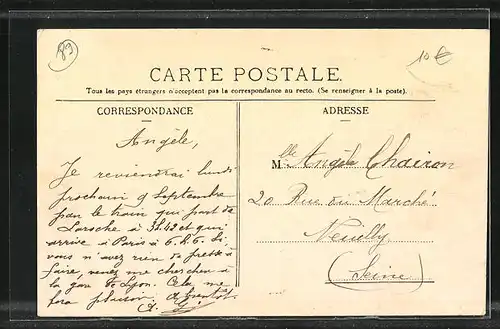 89
10€
CARTE POSTALE.
Tous les pays étrangers n'acceptent pas la correspondance au recto. (Se renseigner à la poste).
CORRESPONDANCE
Angèle,
Je reviendrai lundi
prochain 9 Septembre
par le train qui part de
Laroche à 3h42 et qui
arrive à Paris à 6.h6. Si
vous n'avez rien de pressé à
faire, venez me chercher à
la gare de Lyon. Cela me
fera plaisir. A bientôt
ADRESSE
Mlle Angèle Chairon
20 Rue du Marché
Neuilly
(Seine)